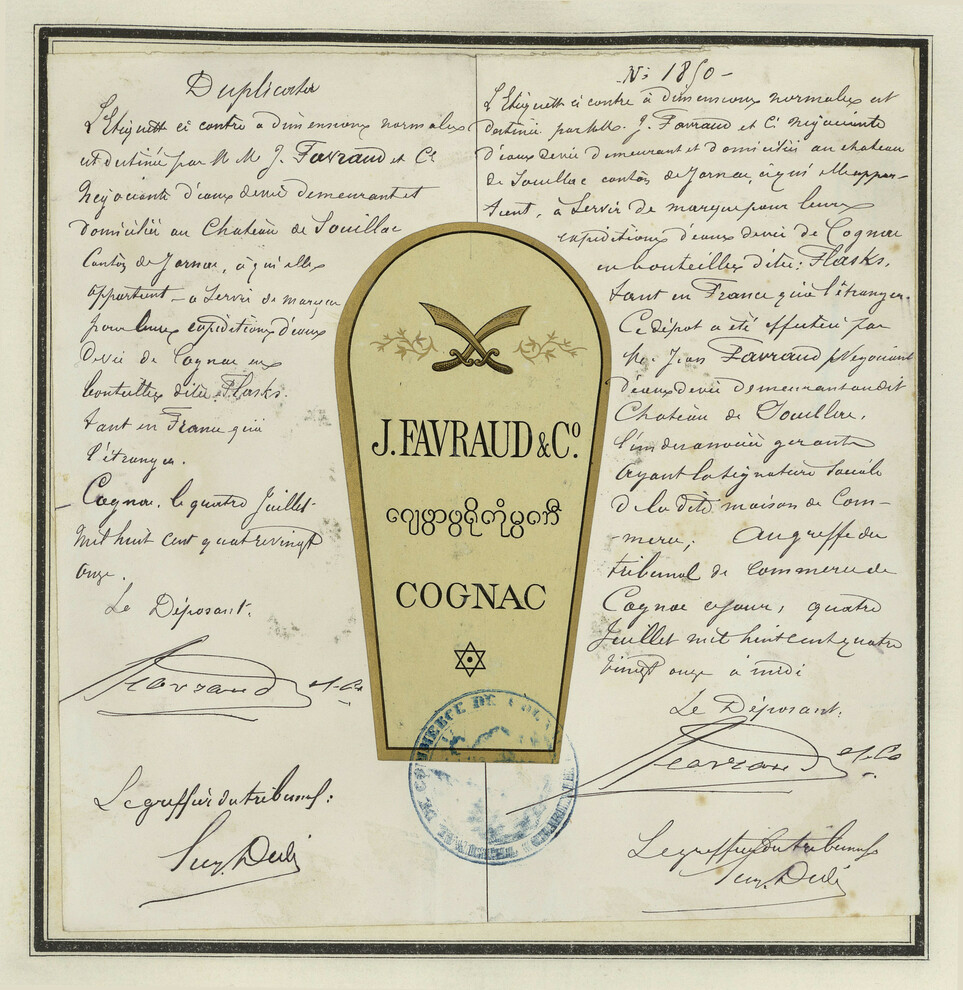 Duplicata
L'Etiquette ci contre à dimensions normales
est destinée par M M J. Favraud et Cie
Négociants d'eaux de vie demeurant et
domiciliés au Chateau de Souillac
Canton de Jarnac, à qui elle
appartient - à servir de marque
pour leurs expéditions d'eaux
de vie de Cognac en
bouteilles dites: Flasks.
tant en France qu'à
l'étranger.
Cognac, le quatre Juillet
mil huit cent quatre vingt
onze.
Le Déposant.
Favraud & Co
Le greffier du tribunal:
J. FAVRAUD & Co.
COGNAC
No 1850 -
L'Etiquette ci contre à dimensions normales est
destinée par MM. J. Favraud et Cie Négociants
d'eaux de vie demeurant et domiciliés au chateau
de Souillac canton de Jarnac, à qui elle appar-
tient, à servir de marque pour leurs
expéditions d'eaux de vie de Cognac
en bouteilles dites: Flasks.
tant en France qu'à l'étranger.
Ce dépot a été effectué par
Mr. Jean Favraud Négociant
d'eaux de vie demeurant audit
Chateau de Souillac,
l'un des associés gérants
ayant la signature sociale
de la dite maison de Com-
-merce; au greffe du
tribunal de commerce de
Cognac ce jour, quatre
Juillet mil huit cent quatre
vingt onze à midi
Le Déposant:
Favraud & Co
Le greffier du tribunal
TRIBUNAL DE COMMERCE DE COGNAC